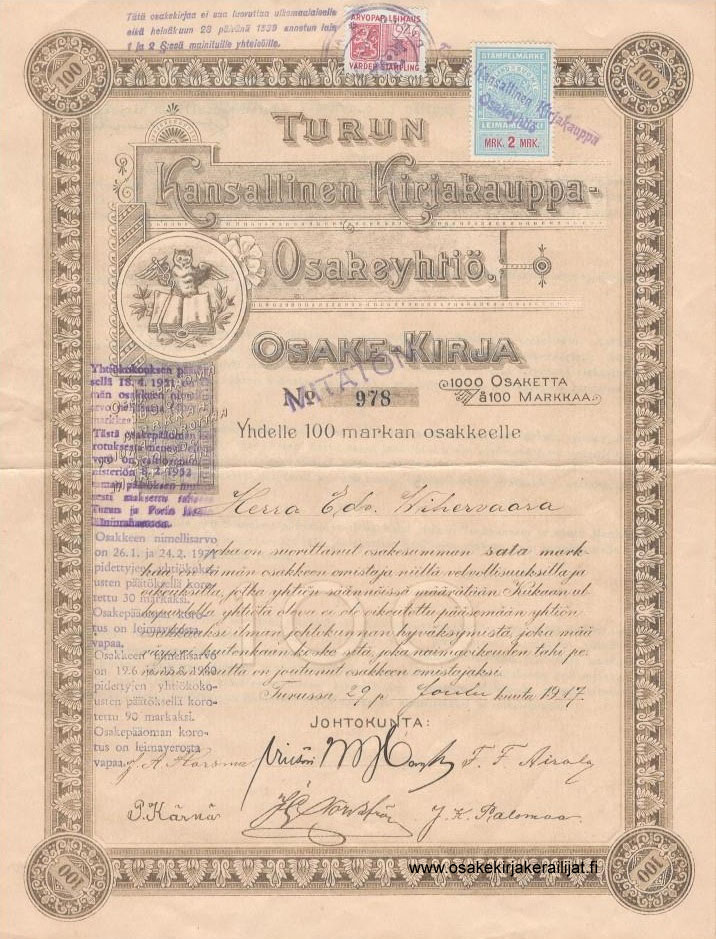 Tätä osakekirjaa ei saa luovuttaa ulkomaalaiselle
eikä heinäkuun 28 päivänä 1939 annetun lain
1 ja 2 §:ssä mainituille yhteisöille.
ARVOPAP. LEIHAUS
STÄMPELMARKE
LEIMAMERKKI
MRK. 2 MRK.
Kansallinen Kirjakauppa
Osakeyhtiö
100
100
TURUN
Kansallinen Kirjakauppa-
Osakeyhtiö.
OSAKE-KIRJA
MITÄTÖN
No 978
1000 OSAKETTA
à 100 MARKKAA
Yhdelle 100 markan osakkeelle
Yhtiökokouksen
sellä 18.4.1931
män osakkeen
Tästä osakepääoman
rotuksesta
Turun ja Porin
lääninrahastoon.
Osakkeen nimellisarvo
on 26.1. ja 24.2. 1971
pidettyjen yhtiökoko-
usten päätöksellä koro-
tettu 30 markaksi.
Osakepääoman koro-
tus on leimaveron
vapaa.
Osakkeen nimellisarvo
on 19.6 ja 1980
pidettyjen yhtiökoko-
usten päätöksellä koro-
tettu 90 markaksi.
Osakepääoman koro-
tus on leimaverosta
vapaa.
Herra Edv. Wihervaara
joka on suorittanut osakesumman sata mark-
kaa, on tämän osakkeen omistaja niillä velvollisuuksilla ja
oikeuksilla, jotka yhtiön säännöissä määrätään. Kukaan ul-
kopuolella yhtiötä oleva ei ole oikeutettu pääsemään yhtiön
osakkaaksi ilman johtokunnan hyväksymistä, joka mää-
räys ei kuitenkaan koske sitä, joka naimaoikeuden tahi pe-
rinnön kautta on joutunut osakkeen omistajaksi.
Turussa 29 p. Joulu kuuta 1917.
JOHTOKUNTA:
J. A. Korsma
F. F. Airola
P. Kärnä
J. K. Palomaa
100
100
www.osakekirjakerailijat.fi